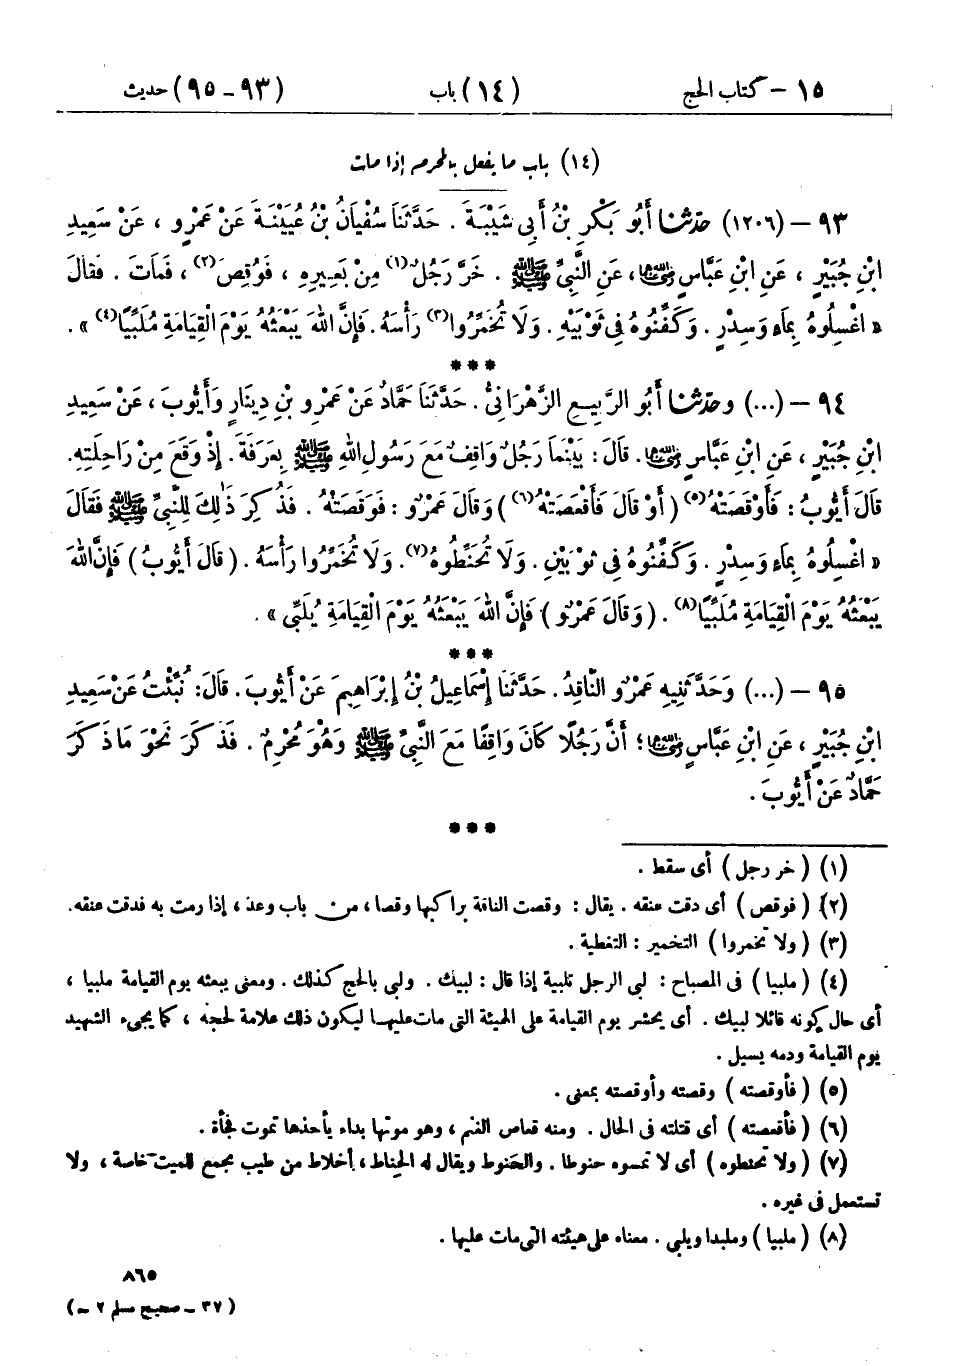 ١٥ – كتاب الحج (١٤) باب (٩٣ – ٩٥) حديث
(١٤) باب ما يفعل بالمحرم إذا مات
٩٣ – (١٢٠٦) حَدَّثَنَا أَبُو بَكْرِ بْنُ أَبِي شَيْبَةَ . حَدَّثَنَا سُفْيَانُ بْنُ عُيَيْنَةَ عَنْ عَمْرٍو ، عَنْ سَعِيدِ
ابْنِ جُبَيْرٍ ، عَنِ ابْنِ عَبَّاسٍ رضي الله عنهما ، عَنِ النَّبِيِّ ﷺ . خَرَّ رَجُلٌ(١) مِنْ بَعِيرِهِ ، فَوُقِصَ(٢) ، فَمَاتَ . فَقَالَ
« اغْسِلُوهُ بِمَاءٍ وَسِدْرٍ . وَكَفِّنُوهُ فِي ثَوْبَيْهِ . وَلَا تُخَمِّرُوا(٣) رَأْسَهُ . فَإِنَّ اللهَ يَبْعَثُهُ يَوْمَ الْقِيَامَةِ مُلَبِّيًا(٤) » .
***
٩٤ – (...) وحَدَّثَنَا أَبُو الرَّبِيعِ الزَّهْرَانِيُّ . حَدَّثَنَا حَمَّادٌ عَنْ عَمْرِو بْنِ دِينَارٍ وَأَيُّوبَ ، عَنْ سَعِيدِ
ابْنِ جُبَيْرٍ ، عَنِ ابْنِ عَبَّاسٍ رضي الله عنهما . قَالَ : بَيْنَمَا رَجُلٌ وَاقِفٌ مَعَ رَسُولِ اللهِ ﷺ بِعَرَفَةَ . إِذْ وَقَعَ مِنْ رَاحِلَتِهِ .
قَالَ أَيُّوبُ : فَأَوْقَصَتْهُ(٥) ( أَوْ قَالَ فَأَقْعَصَتْهُ(٦) ) وَقَالَ عَمْرٌو : فَوَقَصَتْهُ . فَذُكِرَ ذَٰلِكَ لِلنَّبِيِّ ﷺ فَقَالَ
« اغْسِلُوهُ بِمَاءٍ وَسِدْرٍ . وَكَفِّنُوهُ فِي ثَوْبَيْنِ . وَلَا تُحَنِّطُوهُ(٧) . وَلَا تُخَمِّرُوا رَأْسَهُ . ( قَالَ أَيُّوبُ ) فَإِنَّ اللهَ
يَبْعَثُهُ يَوْمَ الْقِيَامَةِ مُلَبِّيًا(٨) . ( وَقَالَ عَمْرٌو ) فَإِنَّ اللهَ يَبْعَثُهُ يَوْمَ الْقِيَامَةِ يُلَبِّي » .
***
٩٥ – (...) وَحَدَّثَنِيهِ عَمْرٌو النَّاقِدُ . حَدَّثَنَا إِسْمَاعِيلُ بْنُ إِبْرَاهِيمَ عَنْ أَيُّوبَ . قَالَ : نُبِّئْتُ عَنْ سَعِيدِ
ابْنِ جُبَيْرٍ ، عَنِ ابْنِ عَبَّاسٍ رضي الله عنهما ؛ أَنَّ رَجُلًا كَانَ وَاقِفًا مَعَ النَّبِيِّ ﷺ وَهُوَ مُحْرِمٌ . فَذَكَرَ نَحْوَ مَا ذَكَرَ
حَمَّادٌ عَنْ أَيُّوبَ .
***
(١) ( خر رجل ) أى سقط .
(٢) ( فوقص ) أى دقت عنقه . يقال : وقصت الناقة براكبها وقصا ، من باب وعد ، إذا رمت به فدقت عنقه .
(٣) ( ولا تخمروا ) التخمير : التغطية .
(٤) ( ملبيا ) فى المصباح : لبى الرجل تلبية إذا قال : لبيك . ولبى بالحج كذلك . ومعنى يبعثه يوم القيامة ملبيا ،
أى حال كونه قائلا لبيك . أى يحشر يوم القيامة على الهيئة التى مات عليها ليكون ذلك علامة لحجه ، كما يجىء الشهيد
يوم القيامة ودمه يسيل .
(٥) ( فأوقصته ) وقصته وأوقصته بمعنى .
(٦) ( فأقعصته ) أى قتلته فى الحال . ومنه قعاص الغنم ، وهو موتها بداء يأخذها تموت فجأة .
(٧) ( ولا تحنطوه ) أى لا تمسوه حنوطا . والحنوط ويقال له الحناط ، أخلاط من طيب يجمع للميت خاصة ، ولا
تستعمل فى غيره .
(٨) ( ملبيا ) وملبدا ويلبي . معناه على هيئته التى مات عليها .
٨٦٥
( ٣٧ – صحيح مسلم – ٢ )